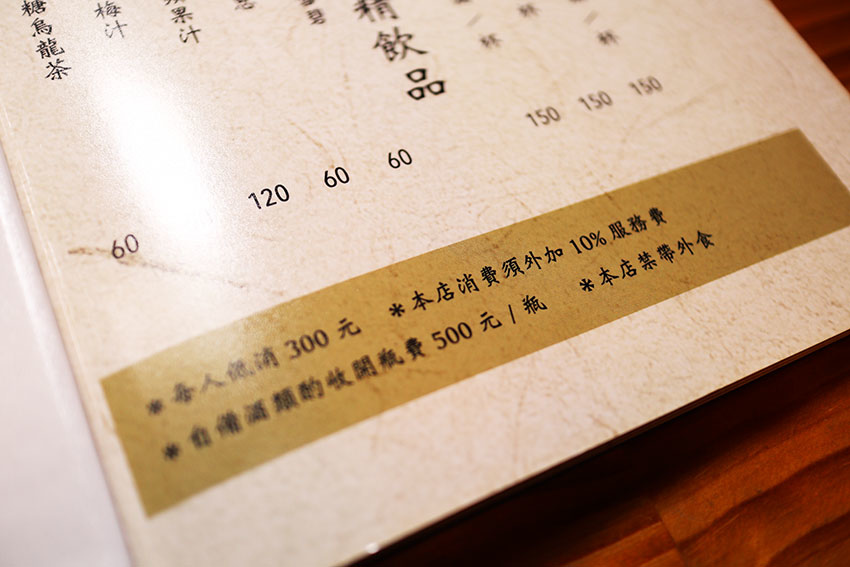 糖烏龍茶
梅汁
果汁
精飲品
杯
杯
杯
60
120
60
60
150
150
150
*每人低消 300 元 *本店消費須外加 10% 服務費
*自備酒類酌收開瓶費 500 元 / 瓶 *本店禁帶外食